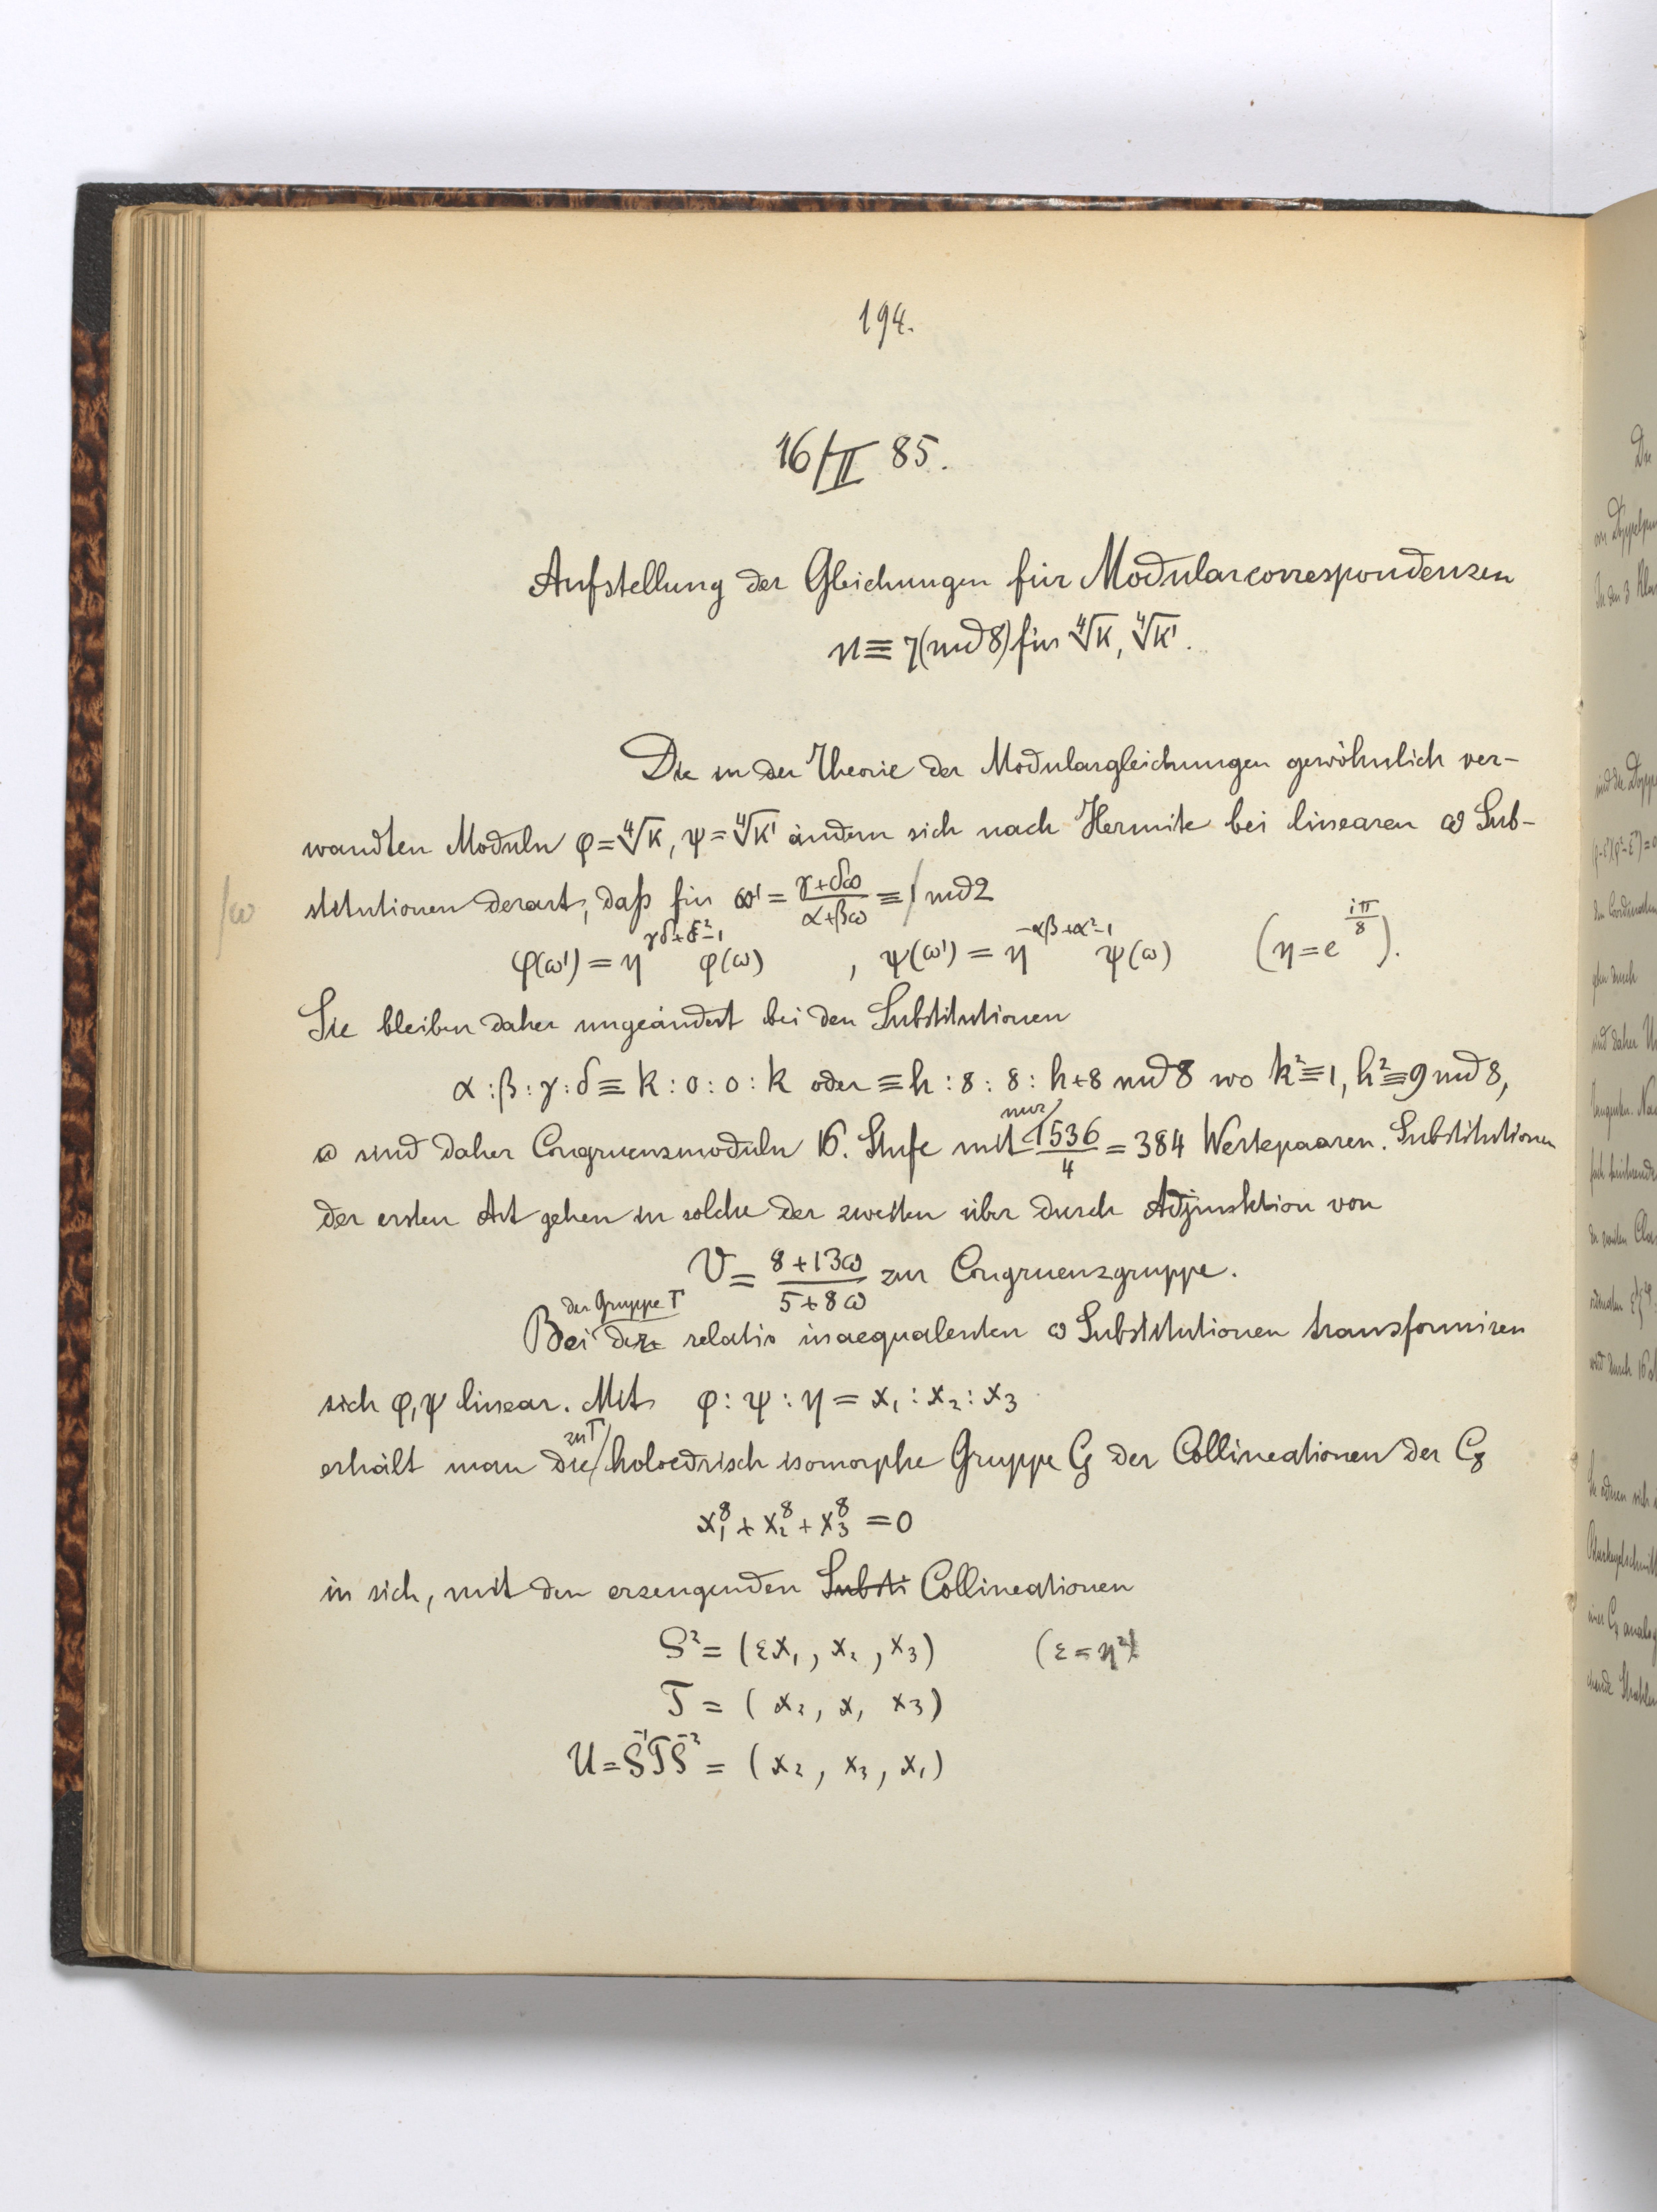 194.
16/II 85.
Aufstellung der Gleichungen für Modularcorrespondenzen
n ≡ 7 (md 8) für ∜K, ∜K'.
Die in der Theorie der Modulargleichungen gewöhnlich ver-
wandten Moduln φ = ∜K, ψ = ∜K' ändern sich nach Hermite bei linearen ω Sub-
/ω stitutionen derart, daß für ω' = (γ+δω)/(α+βω) ≡ / md 2
φ(ω') = η^{γδ+δ²-1} φ(ω) , ψ(ω') = η^{-αβ+α²-1} ψ(ω) (η = e^{iπ/8}).
Sie bleiben daher ungeändert bei den Substitutionen
α : β : γ : δ ≡ k : 0 : 0 : k oder ≡ h : 8 : 8 : h+8 md 8 wo k² ≡ 1, h² ≡ 9 md 8,
sind daher Congruenzmoduln 16. Stufe mit nur 1536/4 = 384 Wertepaaren. Substitutionen
der ersten Art gehen in solche der zweiten über durch Adjunktion von
V = (8+13ω)/(5+8ω) zur Congruenzgruppe.
der Gruppe Γ
Bei der relativ inaequalenten ω Substitutionen transformiren
sich φ, ψ linear. Mit φ : ψ : η = x₁ : x₂ : x₃
zu Γ
erhält man die/ holoedrisch isomorphe Gruppe G der Collineationen der C₈
x₁⁸ + x₂⁸ + x₃⁸ = 0
in sich, mit den erzeugenden Substi Collineationen
S² = (εx₁, x₂, x₃) (ε = η²)
T = (x₂, x₁ x₃)
U = S⁻¹TS⁻² = (x₂, x₃, x₁)